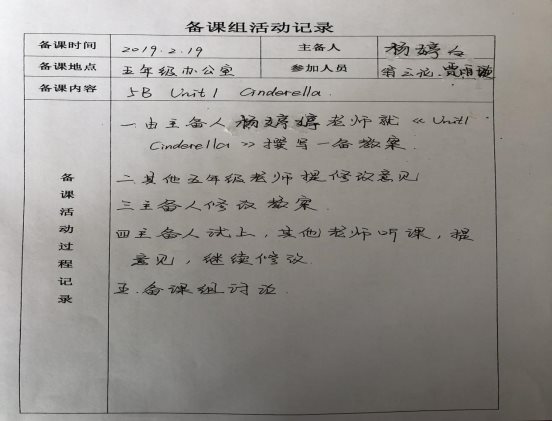 备课组活动记录
备课时间 2019.2.19 主备人 杨婷
备课地点 五年级办公室 参加人员 贾雨
备课内容 5B Unit1 Cinderella.
备课活动过程记录
一由主备人杨婷婷老师就《Unit1
Cinderella》撰写一备教案.
二其他五年级老师提修改意见
三主备人修改教案.
四主备人试上，其他老师听课，提
意见，继续修改.
五.备课组讨议.